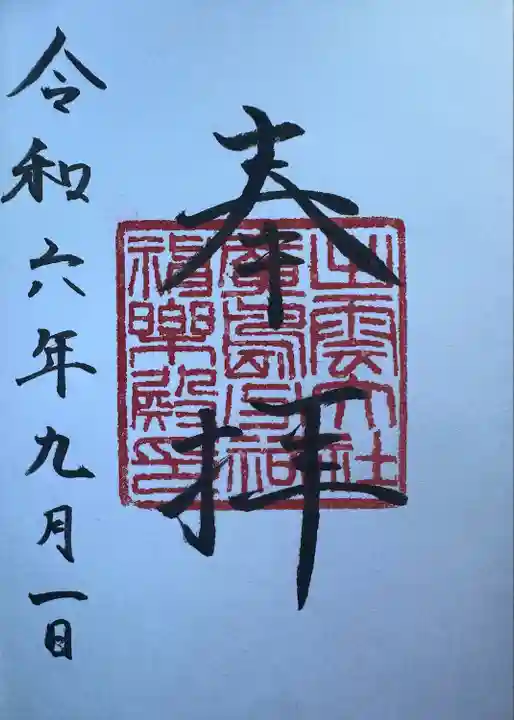 奉拝
出雲大社
廣島分祠
福樂殿印
令和六年九月一日